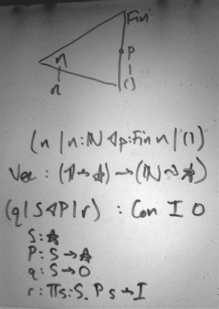 Fin
n
P
n
()
(n | n:ℕ ◁ p:Fin n | ())
Vec : (𝟙→★)→(ℕ→★)
(q | S◁P | r) : Con I O
S:★
P:S→★
q:S→O
r:Πs:S. P s→I